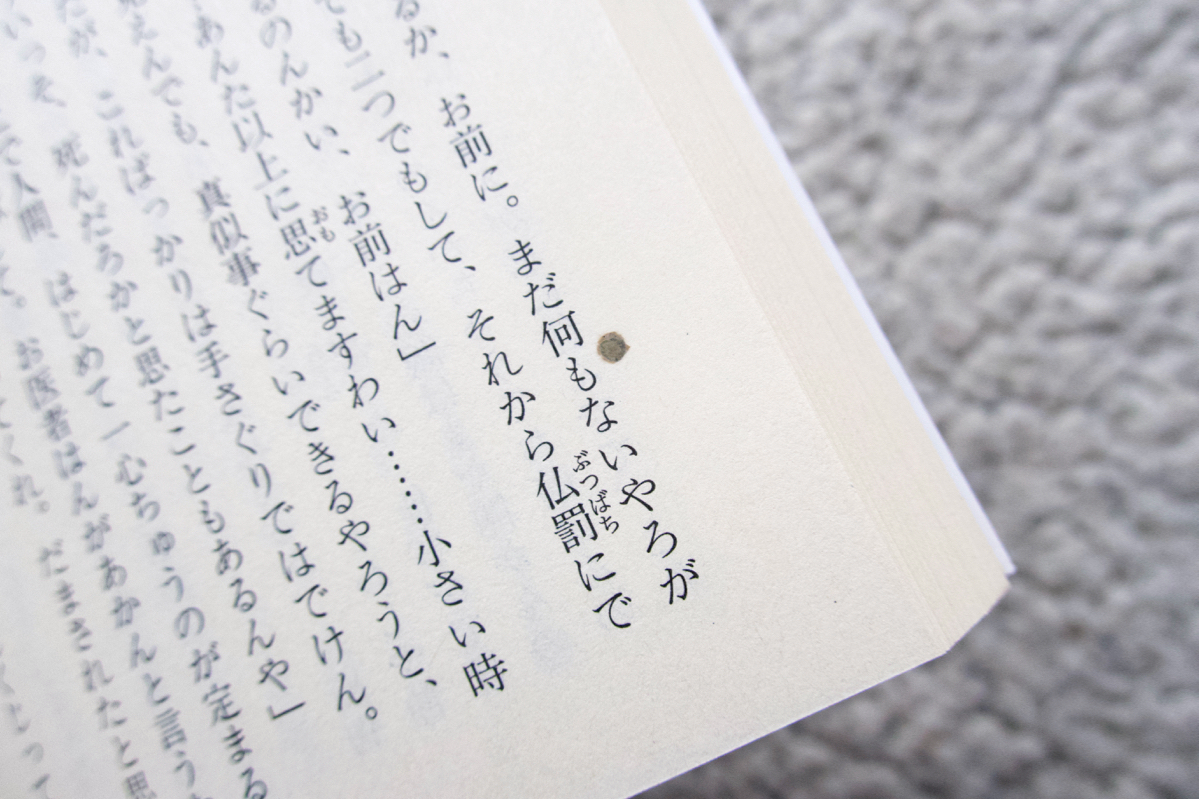 るか、お前に。まだ何もないやろが
ても二つでもして、それから仏罰にで
るのんかい、お前はん」
あんた以上に思てますわい……小さい時
えんでも、真似事ぐらいできるやろうと、
だが、こればっかりは手さぐりではでけん。
いっそ、死んだろかと思たこともあるんや」
で人間、はじめて一心ちゅうのが定まる
て。お医者はんがあかんと言う
てくれ。だまされたと思